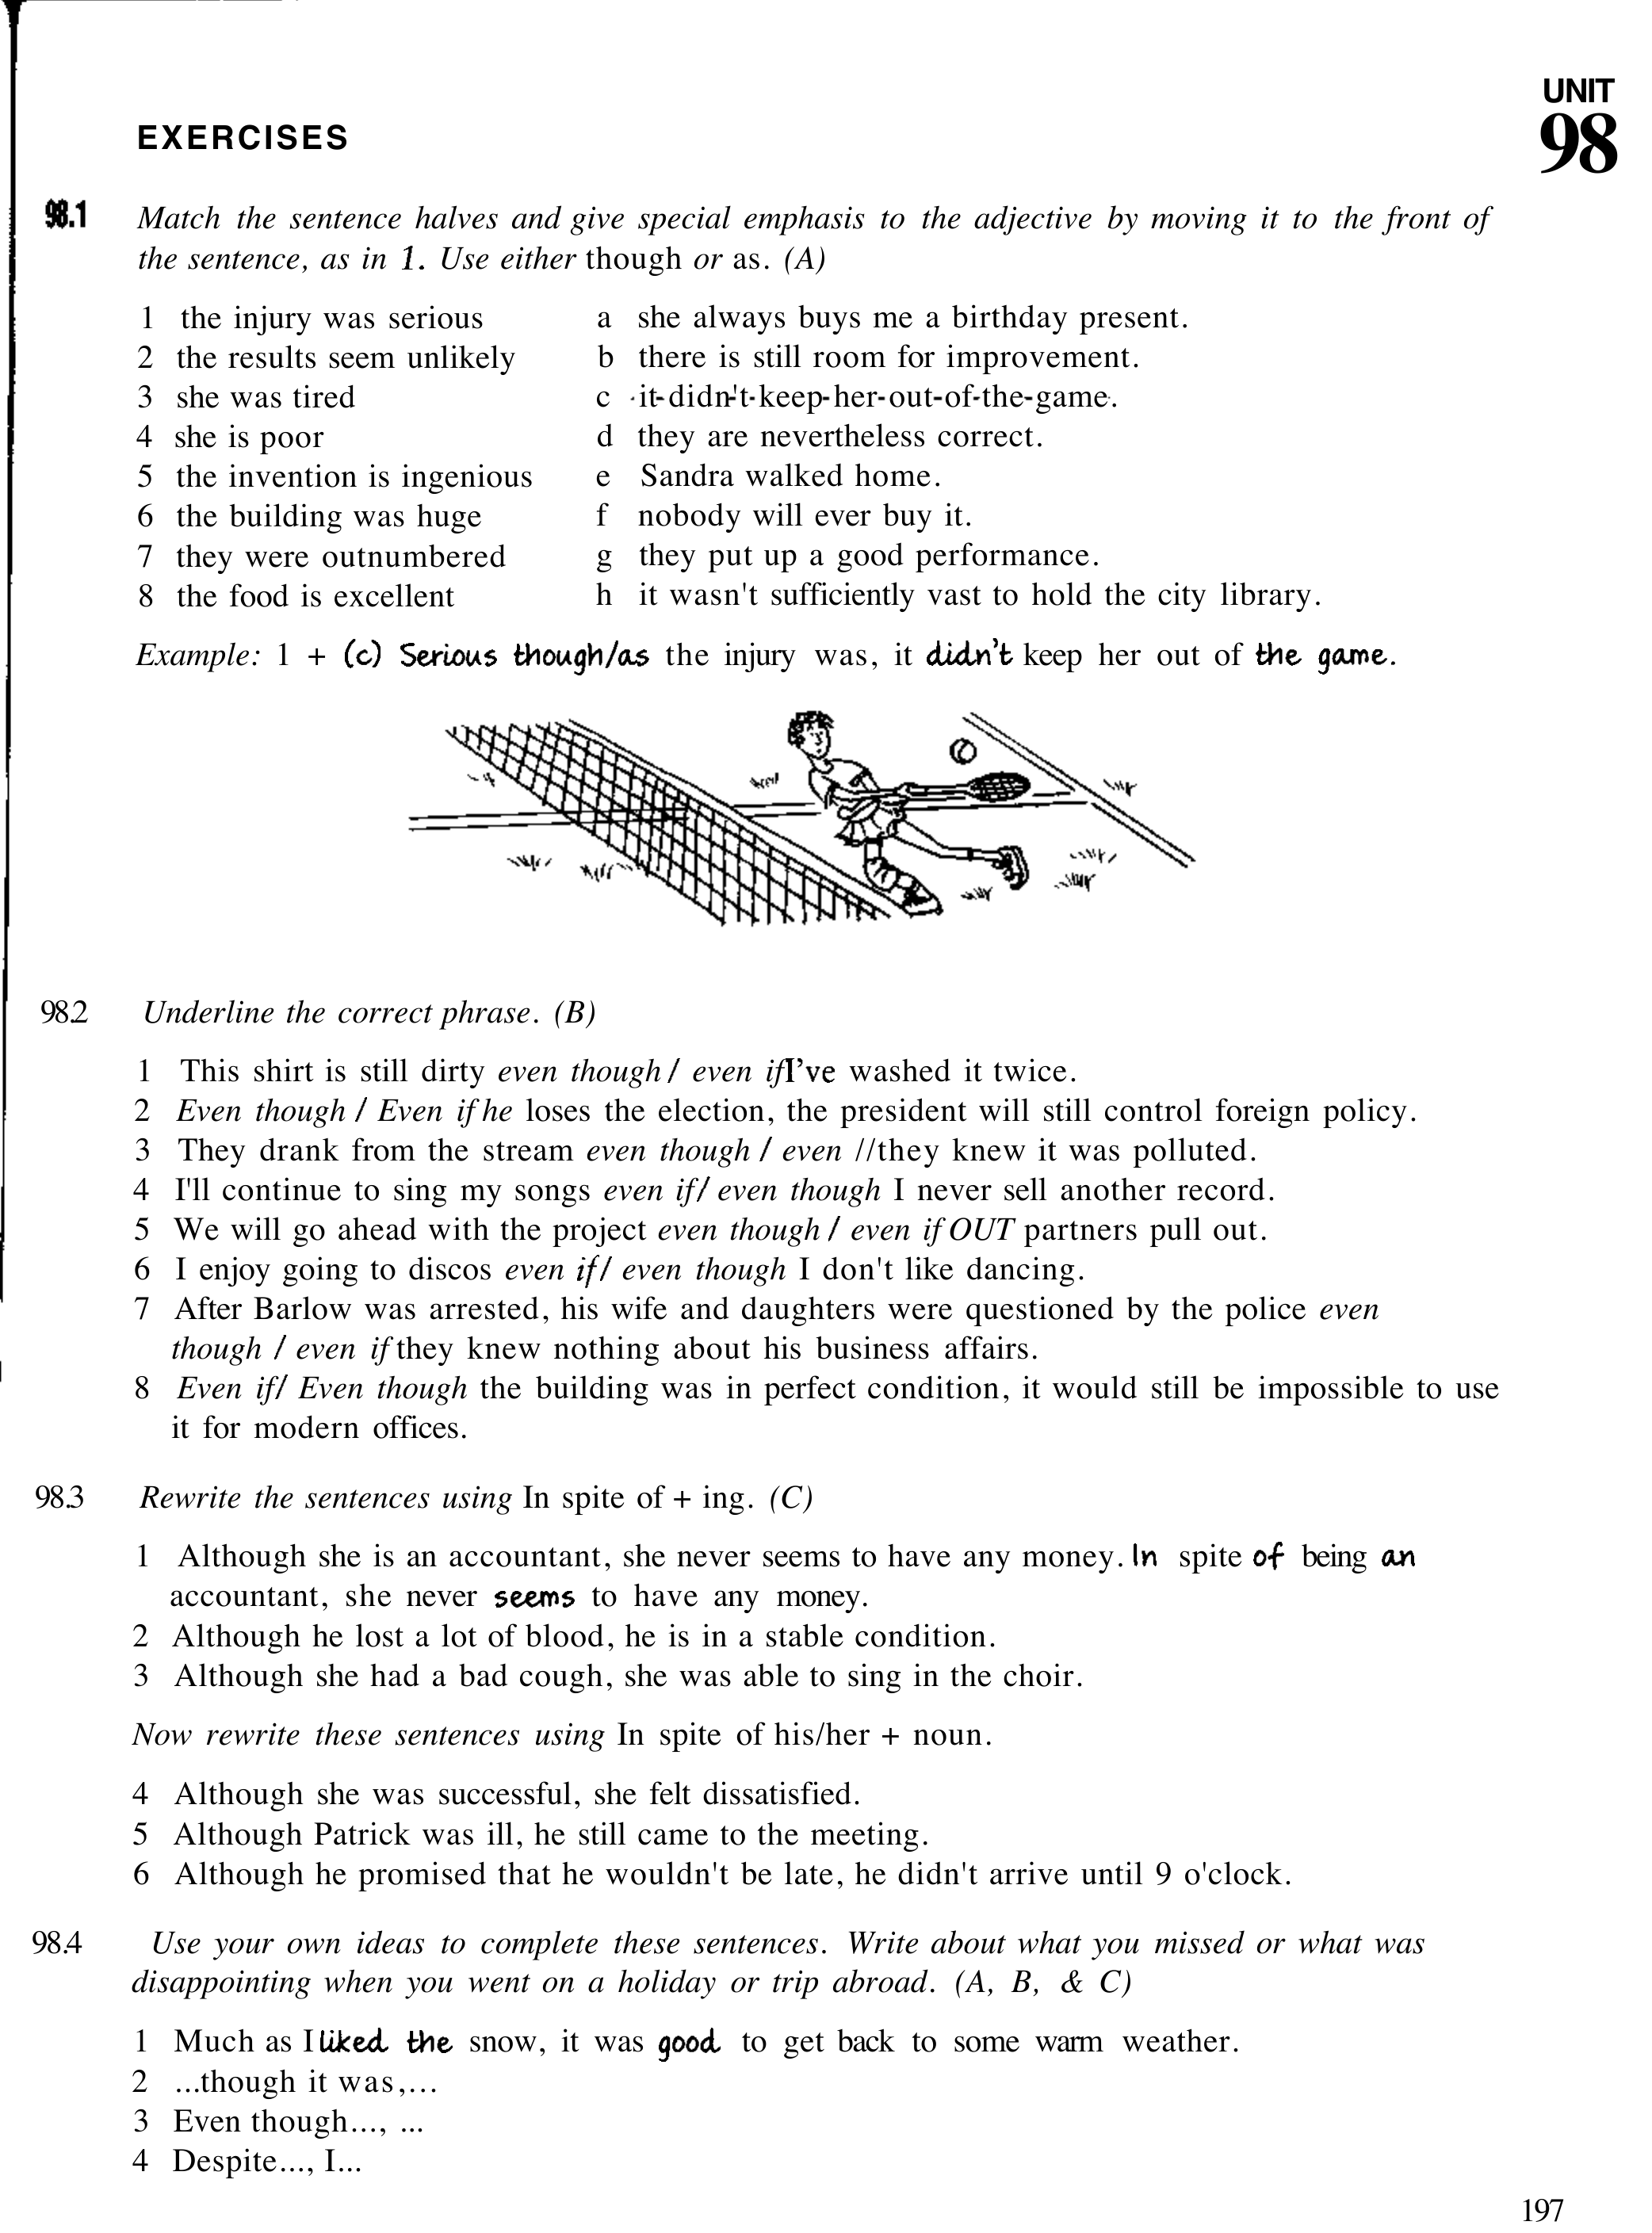 UNIT
98
EXERCISES
98.1 Match the sentence halves and give special emphasis to the adjective by moving it to the front of
the sentence, as in 1. Use either though or as. (A)
1 the injury was serious a she always buys me a birthday present.
2 the results seem unlikely b there is still room for improvement.
3 she was tired c it didn't keep her out of the game.
4 she is poor d they are nevertheless correct.
5 the invention is ingenious e Sandra walked home.
6 the building was huge f nobody will ever buy it.
7 they were outnumbered g they put up a good performance.
8 the food is excellent h it wasn't sufficiently vast to hold the city library.
Example: 1 + (c) Serious though/as the injury was, it didn't keep her out of the game.
98.2 Underline the correct phrase. (B)
1 This shirt is still dirty even though / even if I've washed it twice.
2 Even though / Even if he loses the election, the president will still control foreign policy.
3 They drank from the stream even though / even //they knew it was polluted.
4 I'll continue to sing my songs even if / even though I never sell another record.
5 We will go ahead with the project even though / even if OUT partners pull out.
6 I enjoy going to discos even if / even though I don't like dancing.
7 After Barlow was arrested, his wife and daughters were questioned by the police even
though / even if they knew nothing about his business affairs.
8 Even if / Even though the building was in perfect condition, it would still be impossible to use
it for modern offices.
98.3 Rewrite the sentences using In spite of + ing. (C)
1 Although she is an accountant, she never seems to have any money. In spite of being an
accountant, she never seems to have any money.
2 Although he lost a lot of blood, he is in a stable condition.
3 Although she had a bad cough, she was able to sing in the choir.
Now rewrite these sentences using In spite of his/her + noun.
4 Although she was successful, she felt dissatisfied.
5 Although Patrick was ill, he still came to the meeting.
6 Although he promised that he wouldn't be late, he didn't arrive until 9 o'clock.
98.4 Use your own ideas to complete these sentences. Write about what you missed or what was
disappointing when you went on a holiday or trip abroad. (A, B, & C)
1 Much as I liked the snow, it was good to get back to some warm weather.
2 ...though it was,...
3 Even though..., ...
4 Despite..., I...
197